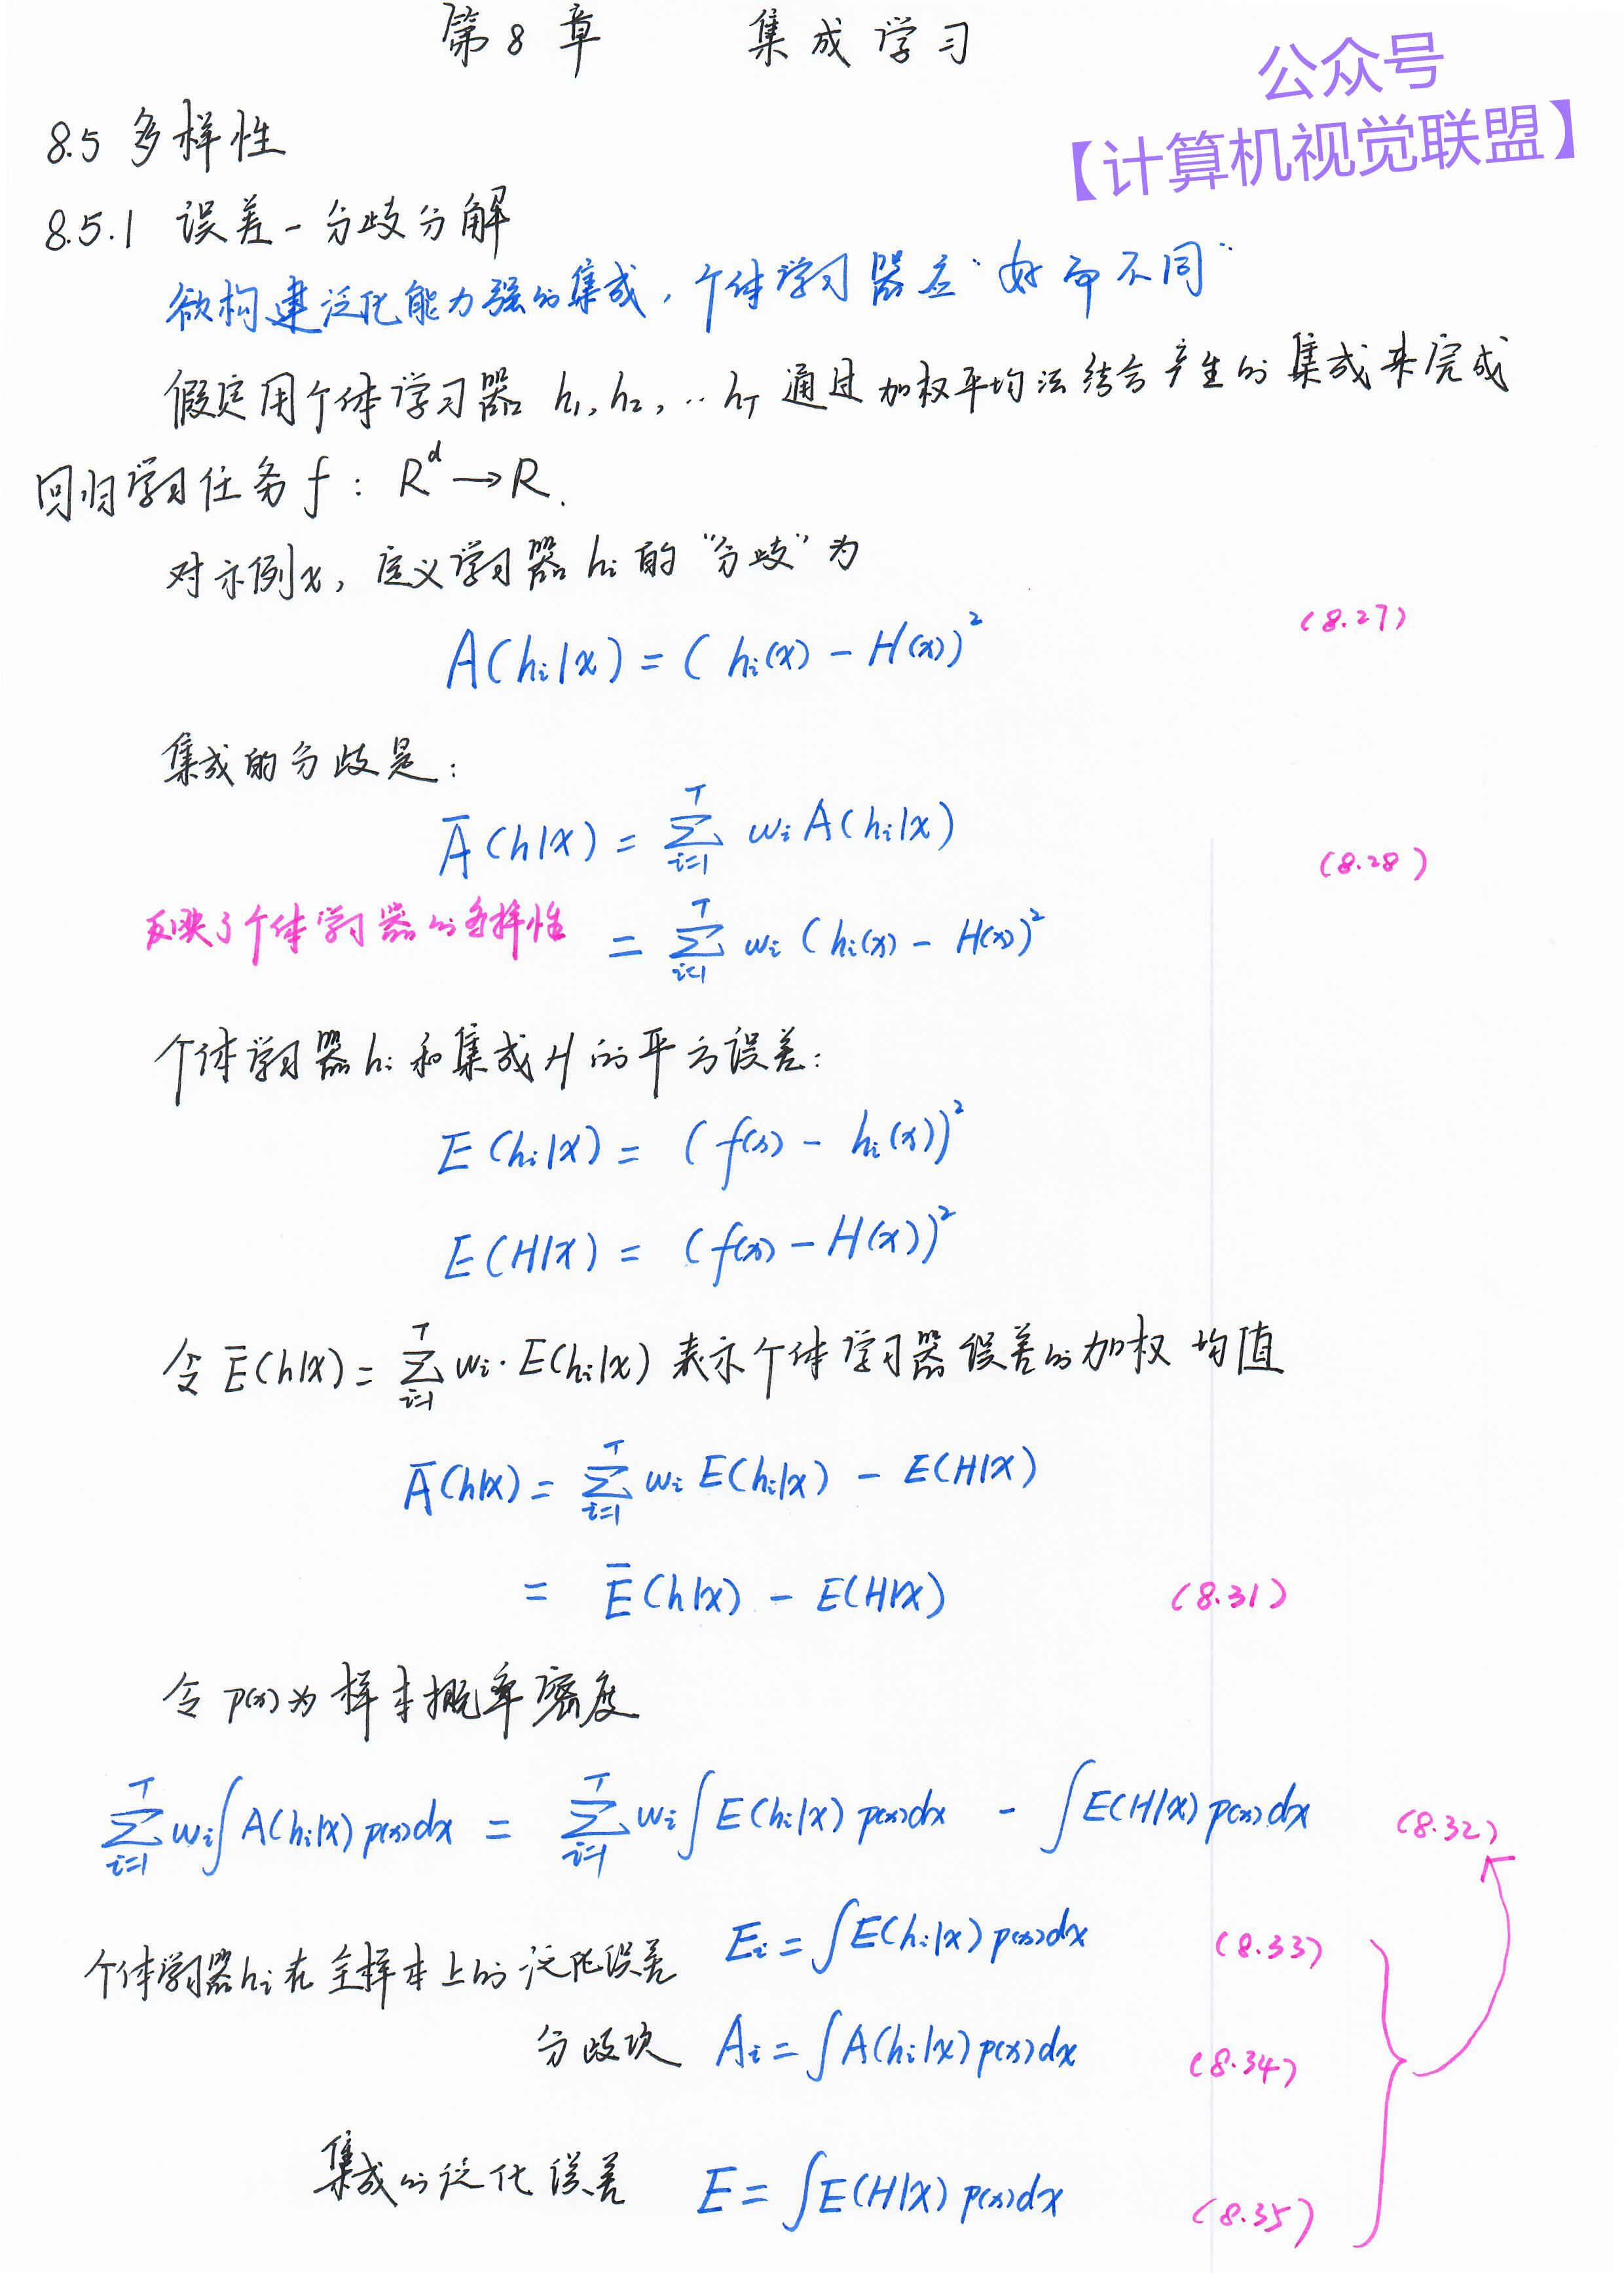 第8章 集成学习
公众号
【计算机视觉联盟】
8.5 多样性
8.5.1 误差-分歧分解
欲构建泛化能力强的集成，个体学习器应“好而不同”
假定用个体学习器 h₁, h₂, ‥ h_T 通过加权平均法结合产生的集成来完成
回归学习任务 f : R^d → R.
对示例x，定义学习器 hᵢ 的“分歧”为
A(hᵢ|x) = ( hᵢ(x) − H(x))² (8.27)
集成的分歧是：
Ā(h|x) = ∑_{i=1}^T wᵢ A(hᵢ|x) (8.28)
反映了个体学习器的多样性 = ∑_{i=1}^T wᵢ (hᵢ(x) − H(x))²
个体学习器 hᵢ 和集成 H 的平方误差：
E(hᵢ|x) = (f(x) − hᵢ(x))²
E(H|x) = (f(x) − H(x))²
令 Ē(h|x) = ∑_{i=1}^T wᵢ · E(hᵢ|x) 表示个体学习器误差的加权均值
Ā(h|x) = ∑_{i=1}^T wᵢ E(hᵢ|x) − E(H|x)
= Ē(h|x) − E(H|x) (8.31)
令 p(x) 为样本概率密度
∑_{i=1}^T wᵢ∫A(hᵢ|x) p(x)dx = ∑_{i=1}^T wᵢ∫E(hᵢ|x) p(x)dx − ∫E(H|x) p(x)dx (8.32)
个体学习器hᵢ在全样本上的泛化误差 Eᵢ = ∫E(hᵢ|x) p(x)dx (8.33)
分歧项 Aᵢ = ∫A(hᵢ|x) p(x)dx (8.34)
集成的泛化误差 E = ∫E(H|x) p(x)dx (8.35)